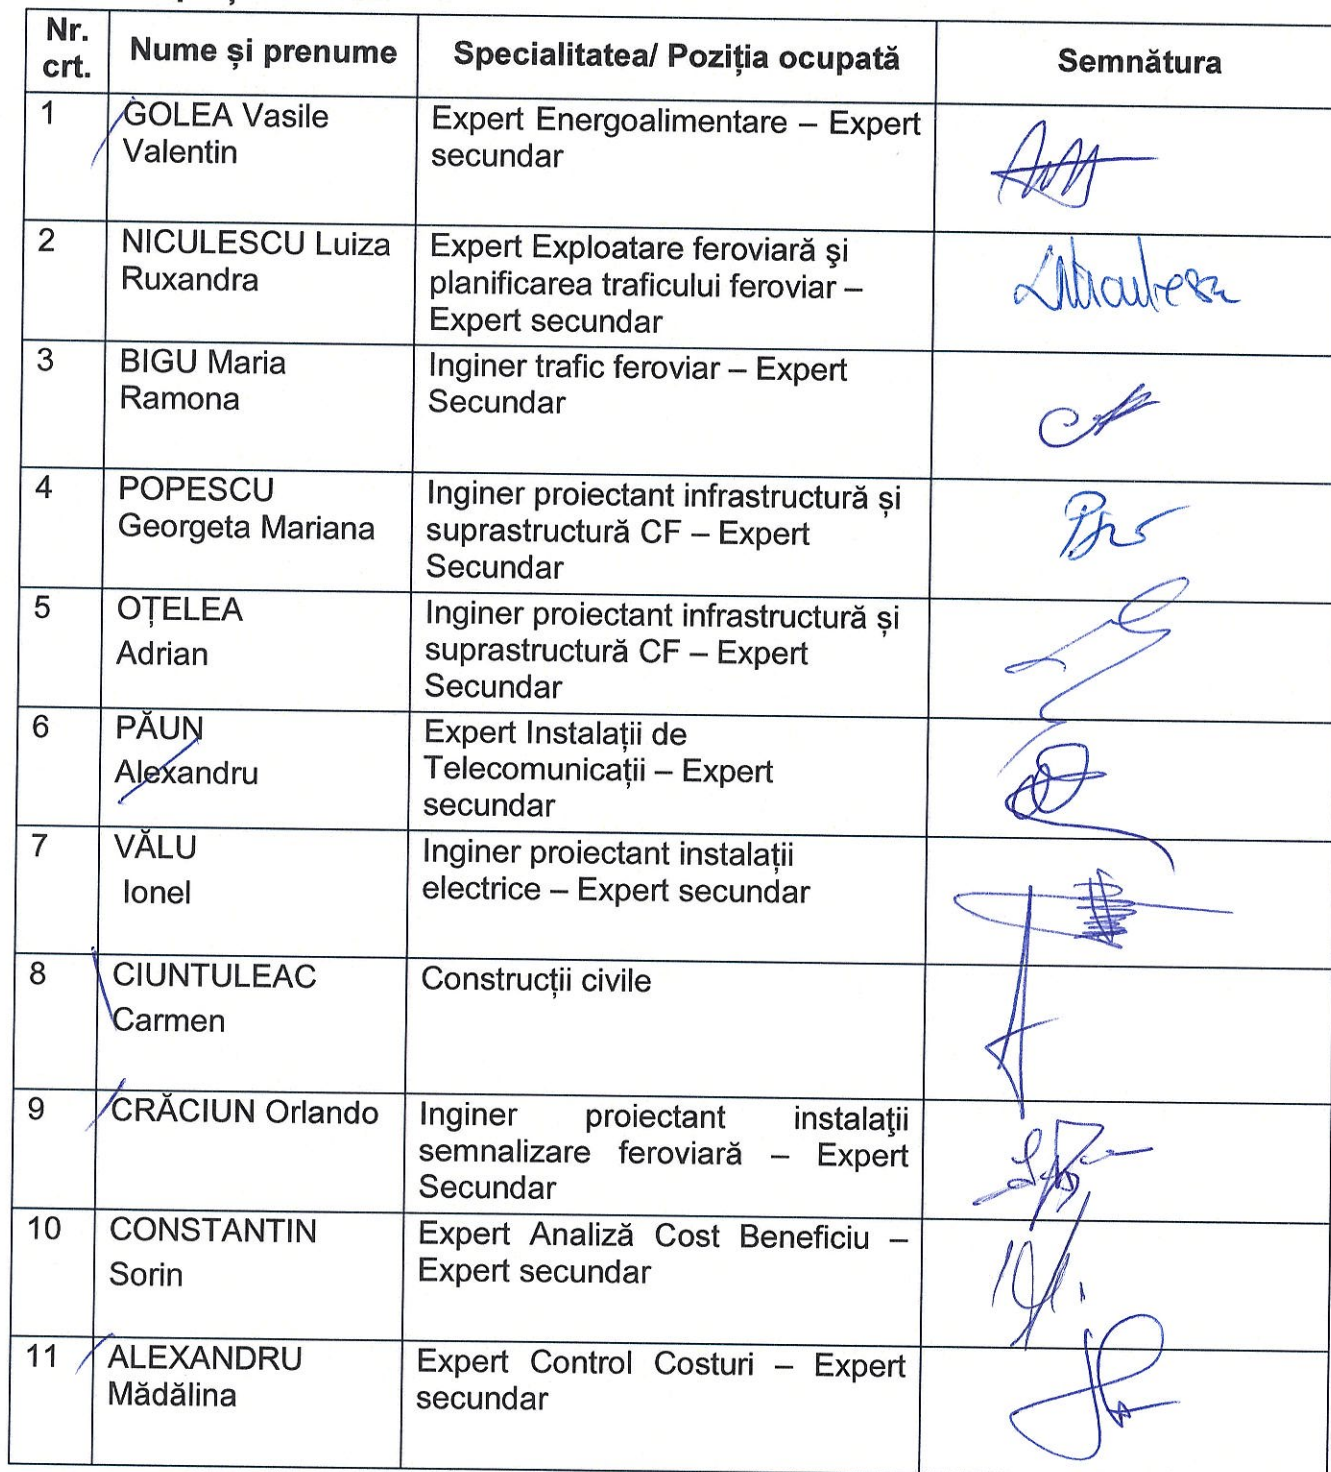 Nr.
crt.
Nume și prenume
Specialitatea/ Poziția ocupată
Semnătura
1
GOLEA Vasile
Valentin
Expert Energoalimentare – Expert
secundar
2
NICULESCU Luiza
Ruxandra
Expert Exploatare feroviară şi
planificarea traficului feroviar –
Expert secundar
3
BIGU Maria
Ramona
Inginer trafic feroviar – Expert
Secundar
4
POPESCU
Georgeta Mariana
Inginer proiectant infrastructură și
suprastructură CF – Expert
Secundar
5
OȚELEA
Adrian
Inginer proiectant infrastructură și
suprastructură CF – Expert
Secundar
6
PĂUN
Alexandru
Expert Instalații de
Telecomunicații – Expert
secundar
7
VĂLU
Ionel
Inginer proiectant instalații
electrice – Expert secundar
8
CIUNTULEAC
Carmen
Construcții civile
9
CRĂCIUN Orlando
Inginer proiectant instalaţii
semnalizare feroviară – Expert
Secundar
10
CONSTANTIN
Sorin
Expert Analiză Cost Beneficiu –
Expert secundar
11
ALEXANDRU
Mădălina
Expert Control Costuri – Expert
secundar